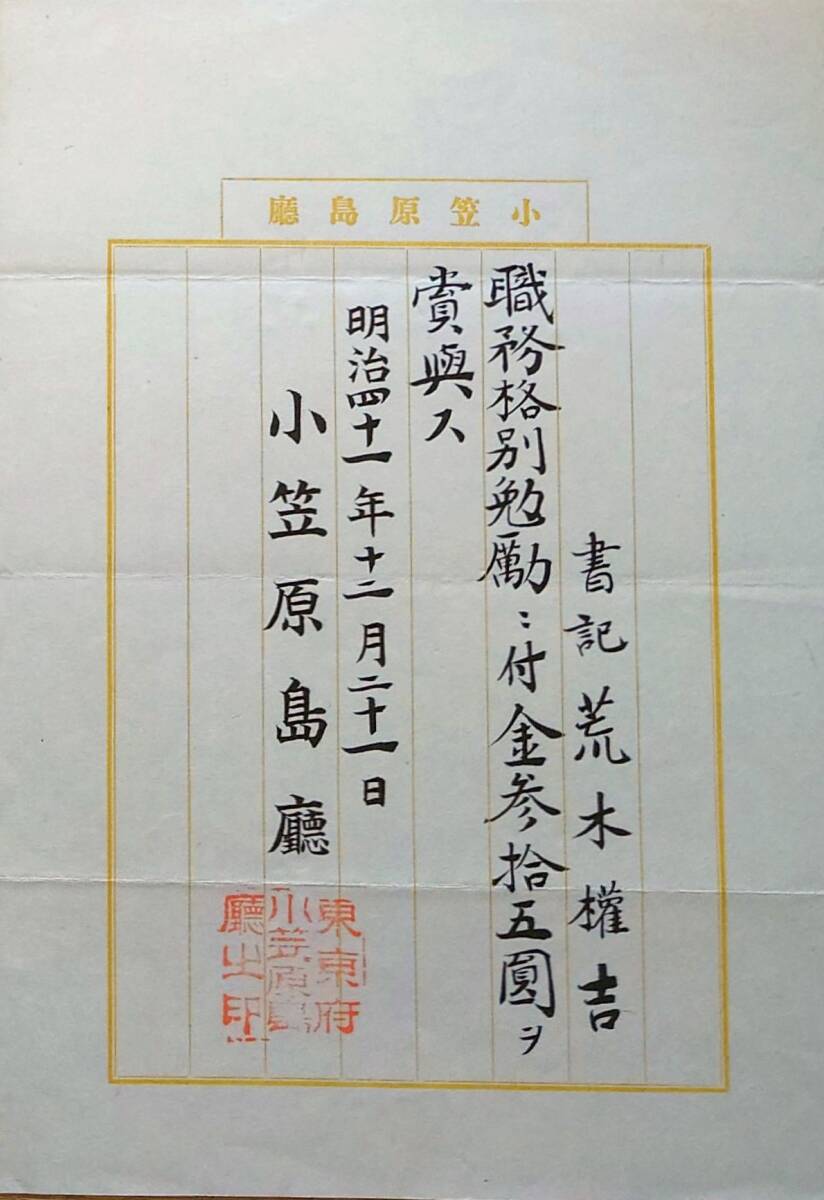 小笠原島廳
書記荒木權吉
職務格別勉勵ニ付金参拾五圓ヲ
賞與ス
明治四十一年十二月二十一日
小笠原島廳
東京府
小笠原島
廳之印